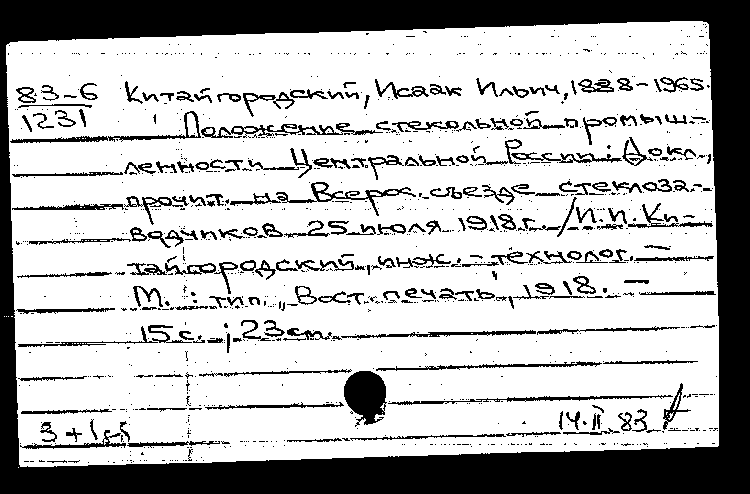 83-6 Китайгородский, Исаак Ильич, 1888-1965.
1231 Положение стекольной промыш-
ленности Центральной России: Докл.,
прочит. на Всерос. съезде стеклоза-
водчиков 25 июля 1918 г. / И.И. Ки-
тайгородский, инж.-технолог. —
М. : тип. „Вост. печать", 1918. —
15 с. ; 23 см.
3 + 1
14.II.83